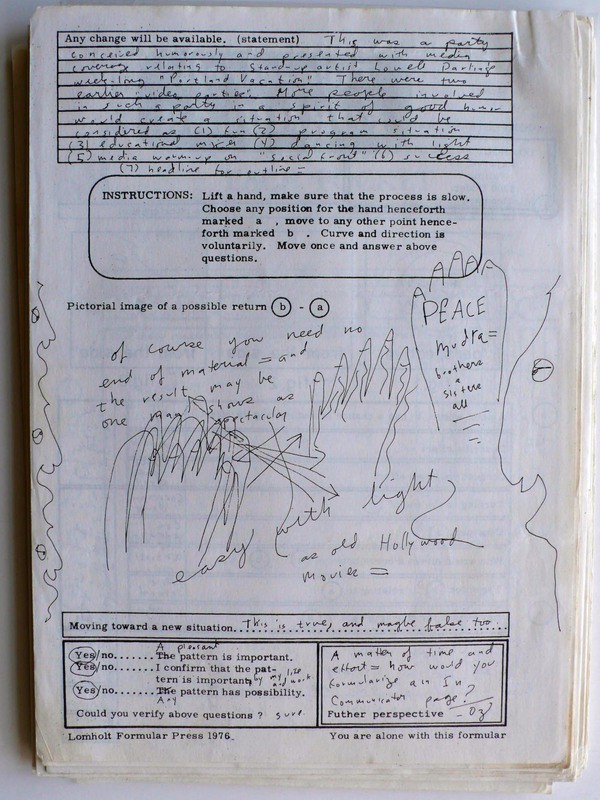 Any change will be available. (statement) This was a party
conceived humorously and presented with media
coverage relating to Stand-up artist Lowell Darling's
week-long "Portland Vacation" There were two
earlier video parties. More people involved
in such a party in a spirit of good humor
would create a situation that could be
considered as (1) fun (2) program situation
(3) educational mixer (4) dancing with light
(5) media warm-up on "Social Front" (6) success
(7) headline for outline =
INSTRUCTIONS: Lift a hand, make sure that the process is slow.
Choose any position for the hand henceforth
marked a , move to any other point hence-
forth marked b . Curve and direction is
voluntarily. Move once and answer above
questions.
Pictorial image of a possible return b - a
A A A A A
PEACE
mudra =
brothers
&
sisters
all
of course you need no
end of material = and
the result may be
one mag shows as
spectacular
easy with light
as old Hollywood
movies =
Moving toward a new situation. This is true, and maybe false too.
A pleasant
Yes/no.......The pattern is important.
Yes/no.......I confirm that the pat-
tern is important, by my life and work
Yes/no.......The pattern has possibility.
Any
Could you verify above questions ? sure
A matter of time and
effort = how would you
formularize an In
Communicator page?
Futher perspective - Oz
Lomholt Formular Press 1976
You are alone with this formular